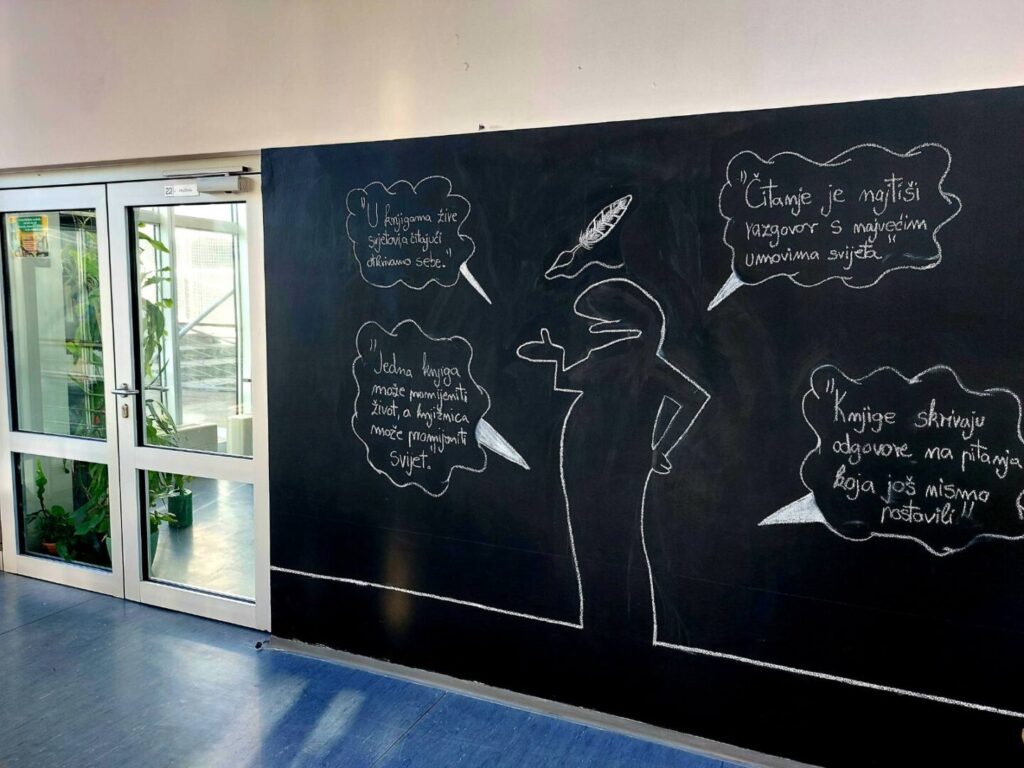 "U knjigama žive
svjetovi,a čitajući
otkrivamo sebe."
"Čitanje je najtiši
razgovor s najvećim
umovima svijeta"
"Jedna knjiga
može promijeniti
život, a knjižnica
može promijeniti
svijet."
"Knjige skrivaju
odgovore na pitanja
koja još nismo
postavili"